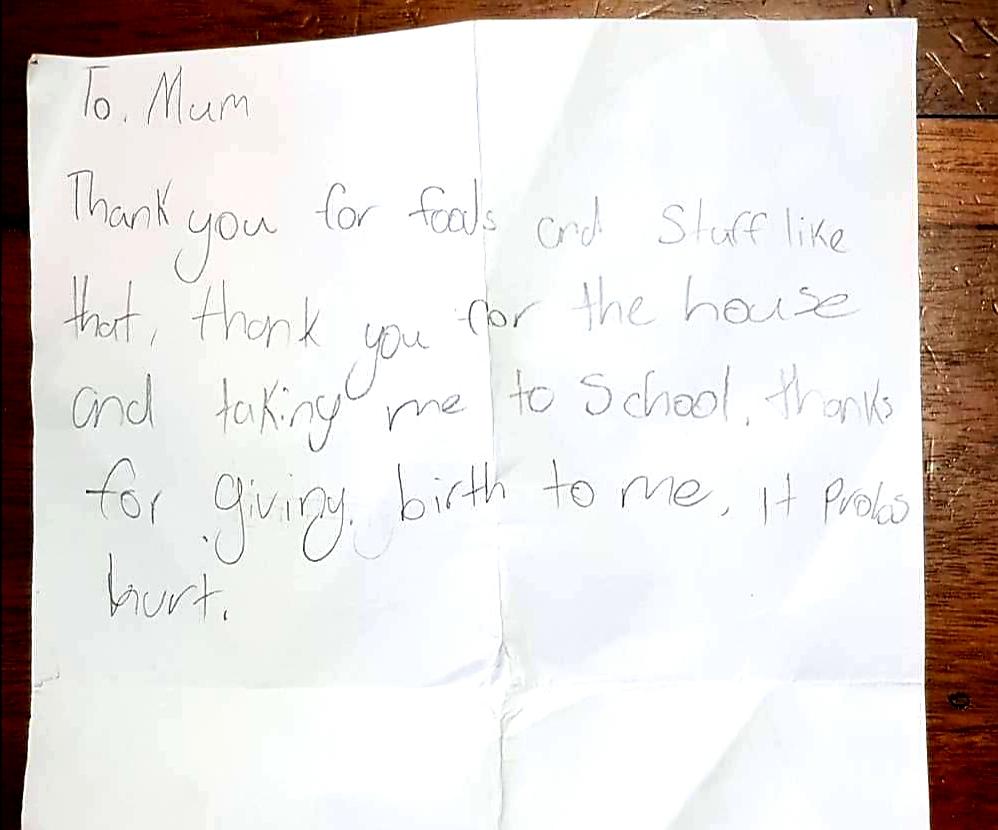 To. Mum
Thank you for foods and Stuff like
that, thank you for the house
and taking me to School, thanks
for giving birth to me, It Probs
hurt.